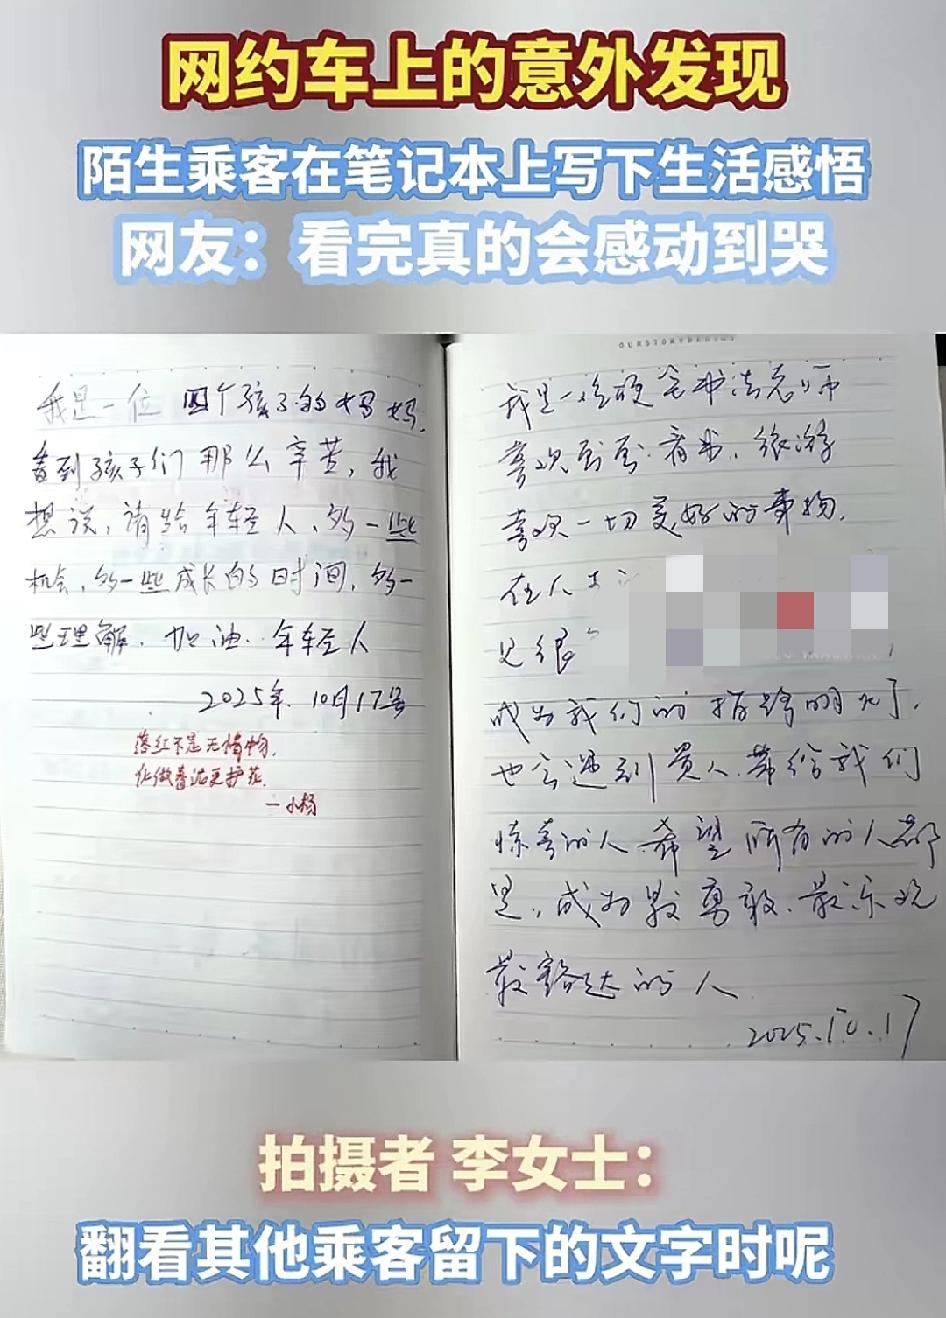 网约车上的意外发现
陌生乘客在笔记本上写下生活感悟
网友：看完真的会感动到哭
我是一位 四个孩子的妈妈.
看到孩子们那么辛苦，我
想说，请给年轻人、多一些
机会，多一些成长的时间，多一
些理解. 加油. 年轻人
2025年. 10月17号
落红不是无情物.
化做春泥更护花.
一小杨
OURSTORYBEGINS
我是一位硬笔书法老师
喜欢画画.看书，旅游
喜欢一切美好的事物.
在人生
成为我们的指路明灯.
也会遇到贵人.带给我们
惊喜的人.希望所有的人都
是，成为最勇敢.最乐观
最豁达的人
2025.10.17
拍摄者 李女士：
翻看其他乘客留下的文字时呢